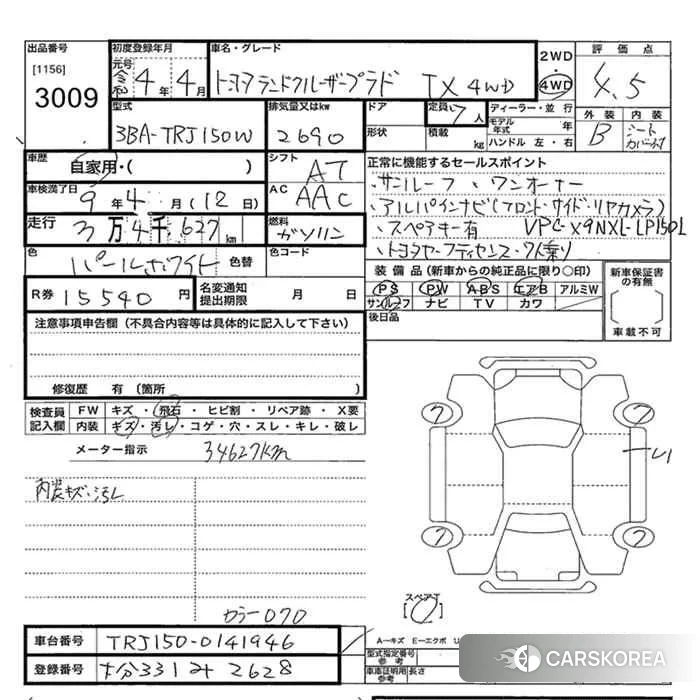 出品番号 初度登録年月 車名・グレード 2WD 評価点
[1156] 元号 令和 4年 4月 トヨタランドクルーザープラド TX 4WD 4WD 4.5
3009
型式 排気量又はkw ドア 定員 7人 ディーラー・並行 外装 内装
3BA-TRJ150W 2690 形状 積載 kg モデル年式 年 B シートカバー付
ハンドル 左・右
車歴 自家用・( ) シフト AT 正常に機能するセールスポイント
車検満了日 9年 4月(12日) AC AAC ・サンルーフ ・ワンオーナー
・アルパインナビ(フロント・サイド・リヤカメラ)
走行 3万4千,627km 燃料 ガソリン ・スペアキー有 VPC-X9NXL-LP150L
色 パールホワイト 色替 色コード ・トヨタセーフティセンス・7人乗り
装備品(新車からの純正品に限り○印) 新車保証書の有無
R券 15540円 名変通知提出期限 月 日 PS PW ABS エアB アルミW
サンルーフ ナビ TV カワ
車載不可
注意事項申告欄(不具合内容等は具体的に記入して下さい) 後日品
修復歴 有(箇所
検査員記入欄 FW キズ・飛石・ヒビ割・リペア跡・X要
内装 キズ・汚レ・コゲ・穴・スレ・キレ・破レ
メーター指示 34627km
7 7
U1
内装キズ・汚レ
7 7
スペアT
カラー070
車台番号 TRJ150-0141946 A-キズ E-エクボ U
型式指定番号 参考
登録番号 2628 車車証明用 参考 長さ
CARSKOREA